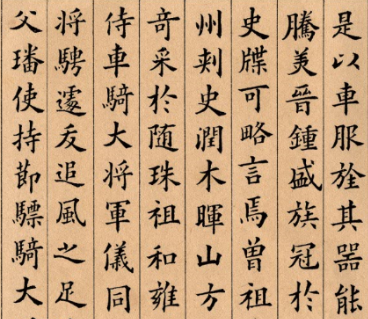 是以車服旌其器能
騰美晉鍾盛族冠於
史牒可略言焉曽祖
州刺史潤木暉山方
奇采於随珠祖和雍
侍車騎大将軍儀同
将騁遽友追風之足
父璠使持節驃騎大